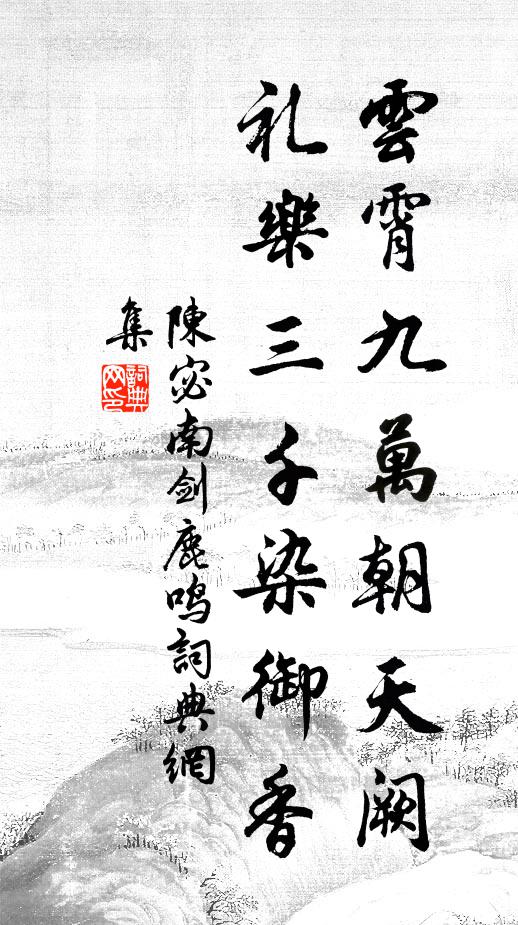 雲霄九萬朝天阙
礼樂三千染御香
陳宓南剑鹿鸣詞典網
集
詞典
网印